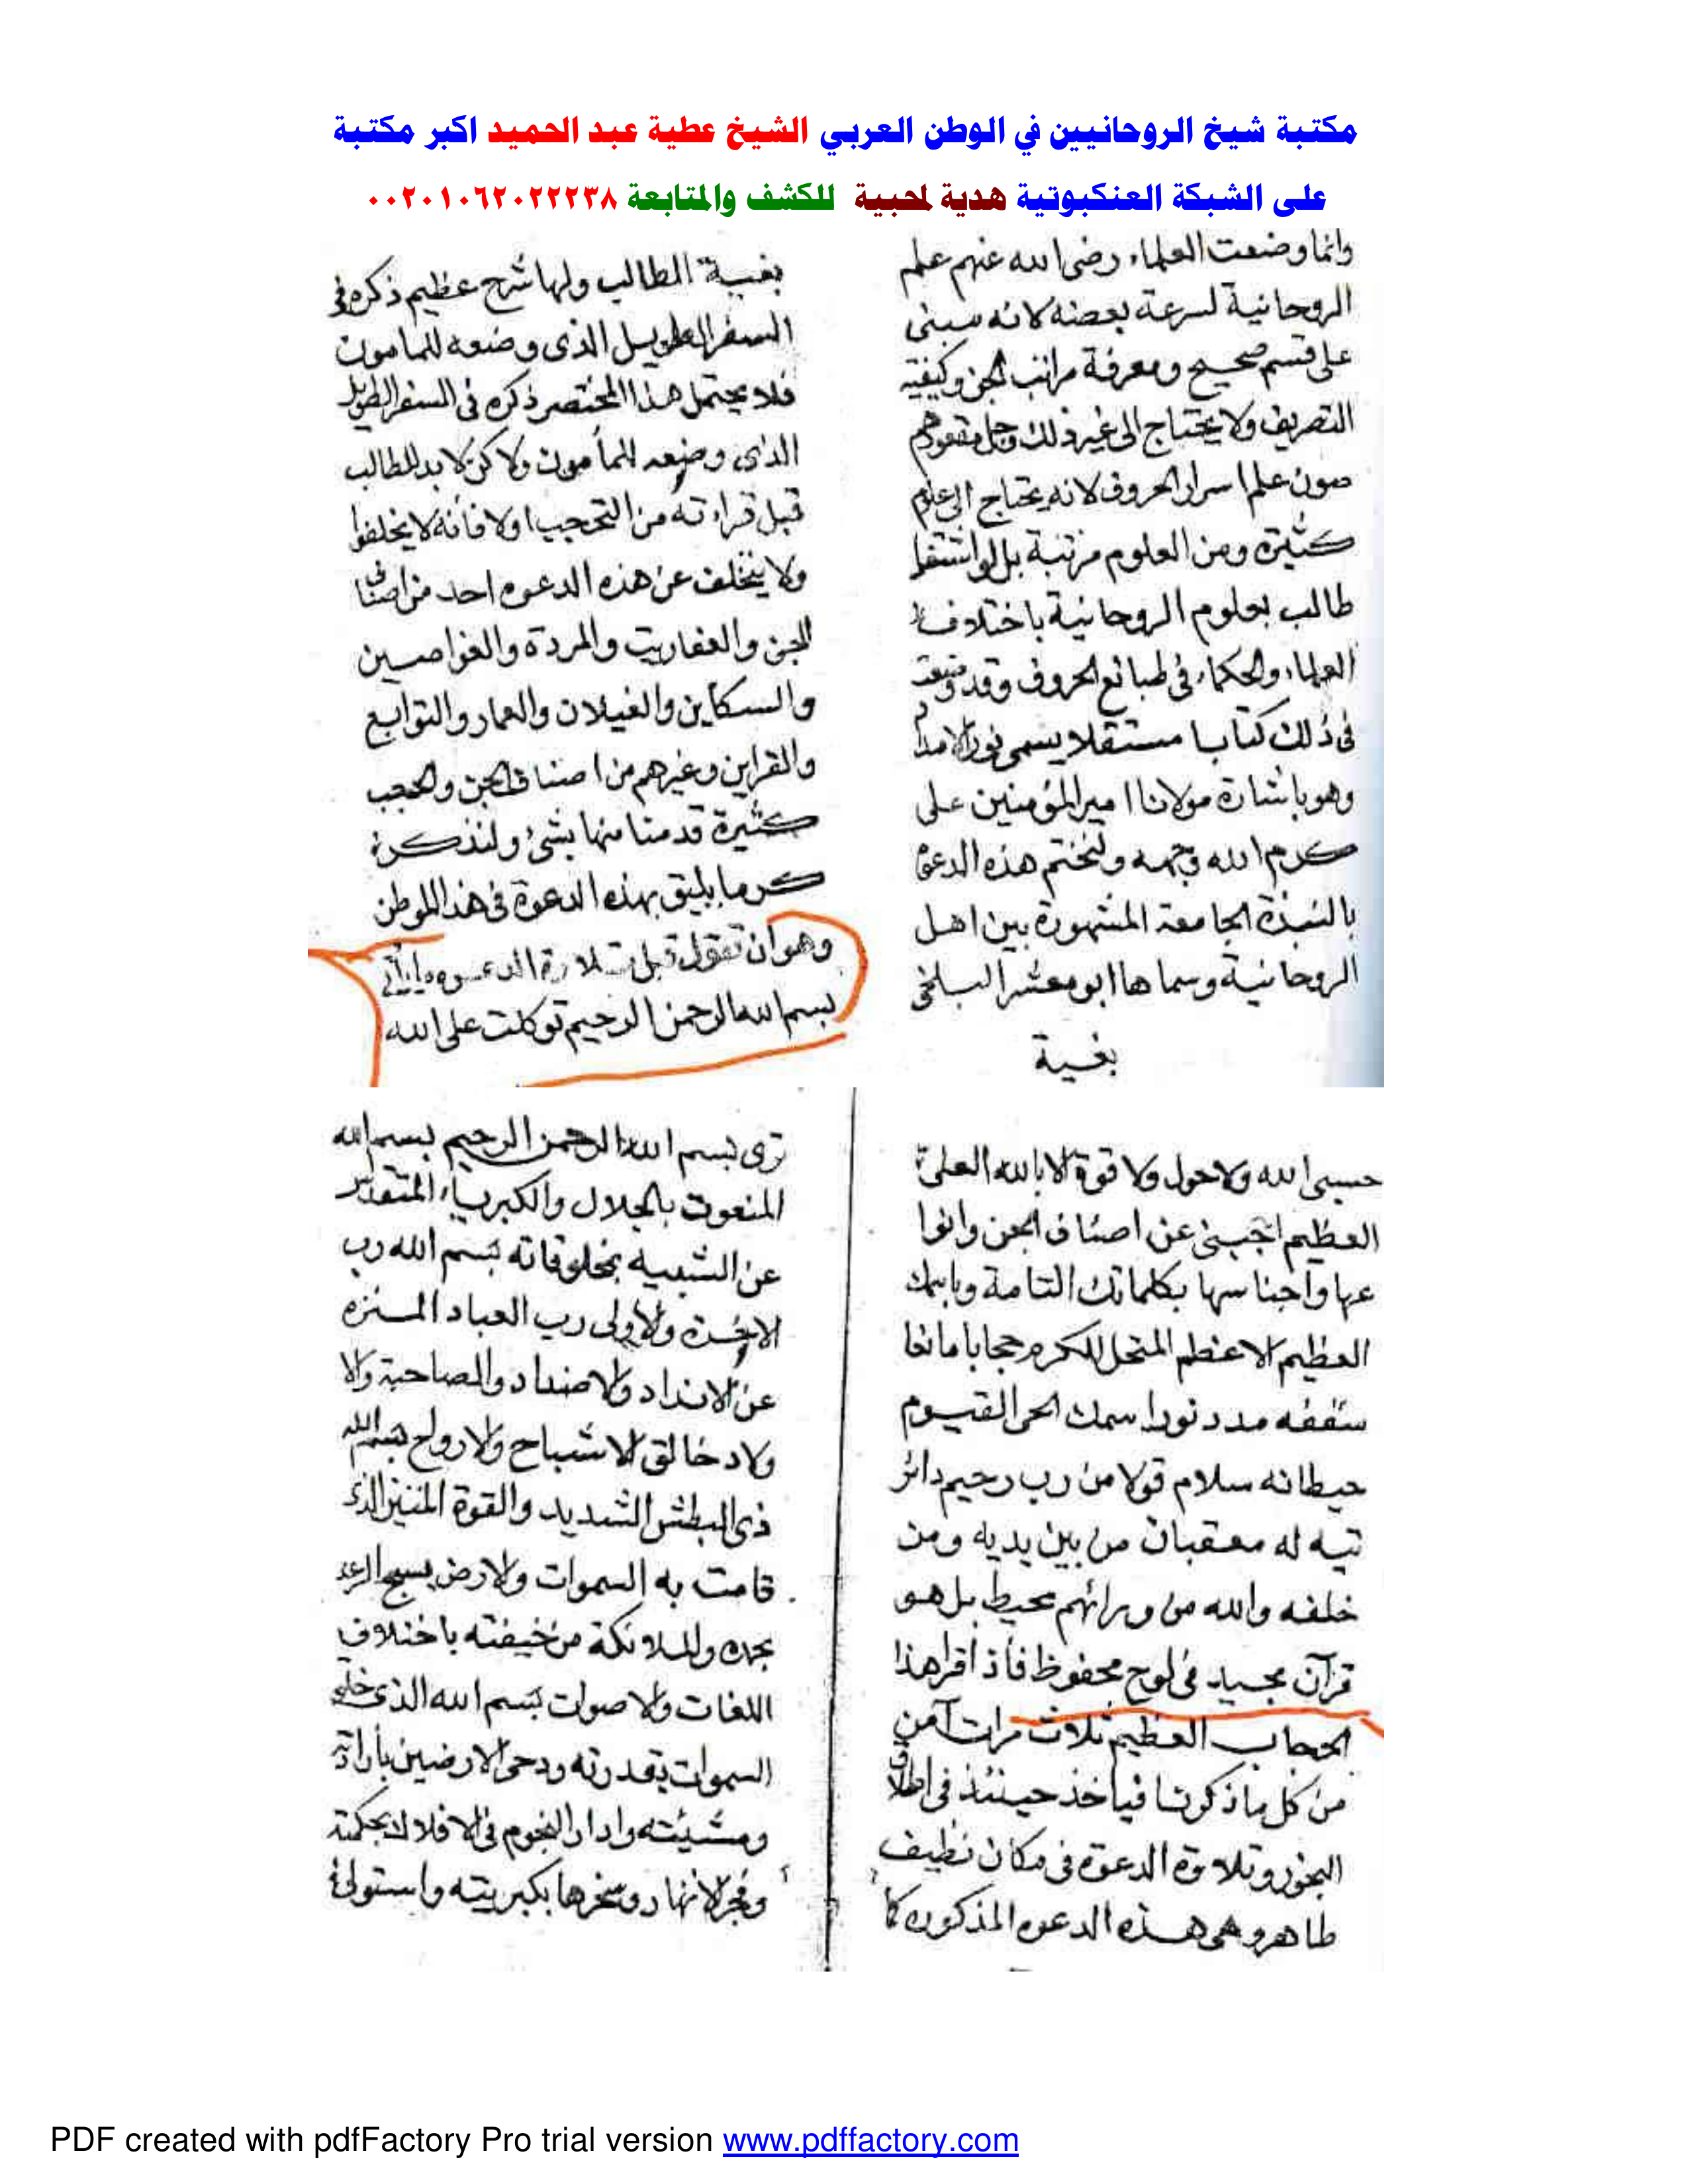 مكتبة شيخ الروحانيين في الوطن العربي الشيخ عطية عبد الحميد اكبر مكتبة
على الشبكة العنكبوتية هدية لمحبية للكشف والمتابعة ٠٠٢٠١٠٦٢٠٢٢٢٣٨
وانما وضعت العلماء رضى الله عنهم علم
الروحانية لسرعة بعضه لانه سبنى
على قسم صحيح ومعرفة مراتب الجن وكيفية
التصريف ولا يحتاج الى غير ذلك وجل مقعودهم
صون علم اسرار الحروف لانه يحتاج الى علوم
كثيرة ومن العلوم مرتبة بل لو اشتغل
طالب بعلوم الروحانية باختلاف
العلماء والحكماء فى طبائع الحروف وقد وضعت
فى ذلك كتابا مستقلا يسمى نور
وهو باشارة مولانا امير المؤمنين على
كرم الله وجهه ولنختم هذه الدعوة
بالنبذة الجامعة المشهورة بين اهل
الروحانية وسماها ابو معشر البلخى
بغية
بغيبة الطالب ولها شرح عظيم ذكره فى
السفر الطويل الذى وضعه للمامون
فلا يحتمل هذا المختصر ذكره فى السفر الطويل
الذى وضعه للمأمون ولاكن لا بد للطالب
قبل قراءته من التحجيب اولا فأنه لا يخلفوا
ولا يتخلف عن هذه الدعوه احد من اصنا
الجن والعفاريت والمردة والغواصين
والسكاين والغيلان والعمار والتوابع
والقراين وغيرهم من اصناف الجن والحجب
كثيرة قدمنا منها بشئ ولنذكر
كرما يليق بهذه الدعوة فى هذا الموطن
وهو ان تقول قبل تلاوة الدعوه
بسم الله الرحمن الرحيم توكلت على الله
حسبى الله ولا حول ولا قوة الا بالله العلى
العظيم احجبنى عن اصناف الجن وانوا
عها واجناسها بكلماتك التامة وباسمك
العظيم الاعظم المكرم حجابا مانعا
سقفه مدد نور اسمك الحى القيوم
حيطانه سلام قولا من رب رحيم دائر
تيه له معقبات من بين يديه ومن
خلفه والله من ورائهم محيط بل هو
قرآن مجيد فى لوح محفوظ فأذا اقرا هذا
الحجاب العظيم ثلاث مرات آمن
من كل ما ذكرنا فياخذ حينئذ فى اطلاق
البخور وتلاوة الدعوة فى مكان نظيف
طاهر وهى هذه الدعوه المذكوره كما
ترى بسم الله الرحمن الرحيم بسم الله
المنعوت بالجلال والكبرياء المتقدس
عن الشبيه بمخلوقاته بسم الله رب
الاخرة والاولى رب العباد المنزه
عن الانداد والاضداد والصاحبة والا
ولاد خالق الاشباح والارواح بسم الله
ذى البطش الشديد والقوة المتين الذى
قامت به السموات والارض يسبح الرعد
بحمده والملائكة من خيفته باختلاف
اللغات والاصوات بسم الله الذى خلق
السموات بقدرته ودحى الارضين بأرادته
ومشيئته وادار النجوم فى الافلاك بحكمته
وفجر الانهار وسخرها بكبريته واستولى
PDF created with pdfFactory Pro trial version www.pdffactory.com